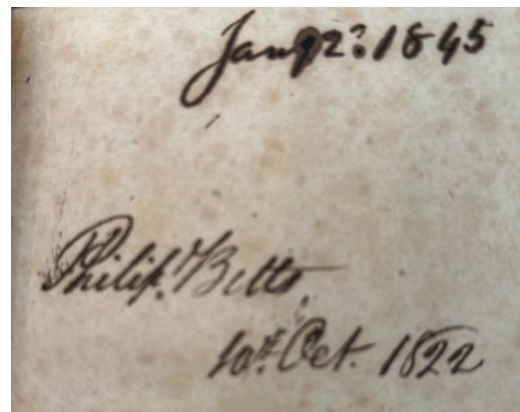 Jany 2d. 1845
Philip. Betts.
10th. Oct. 1822